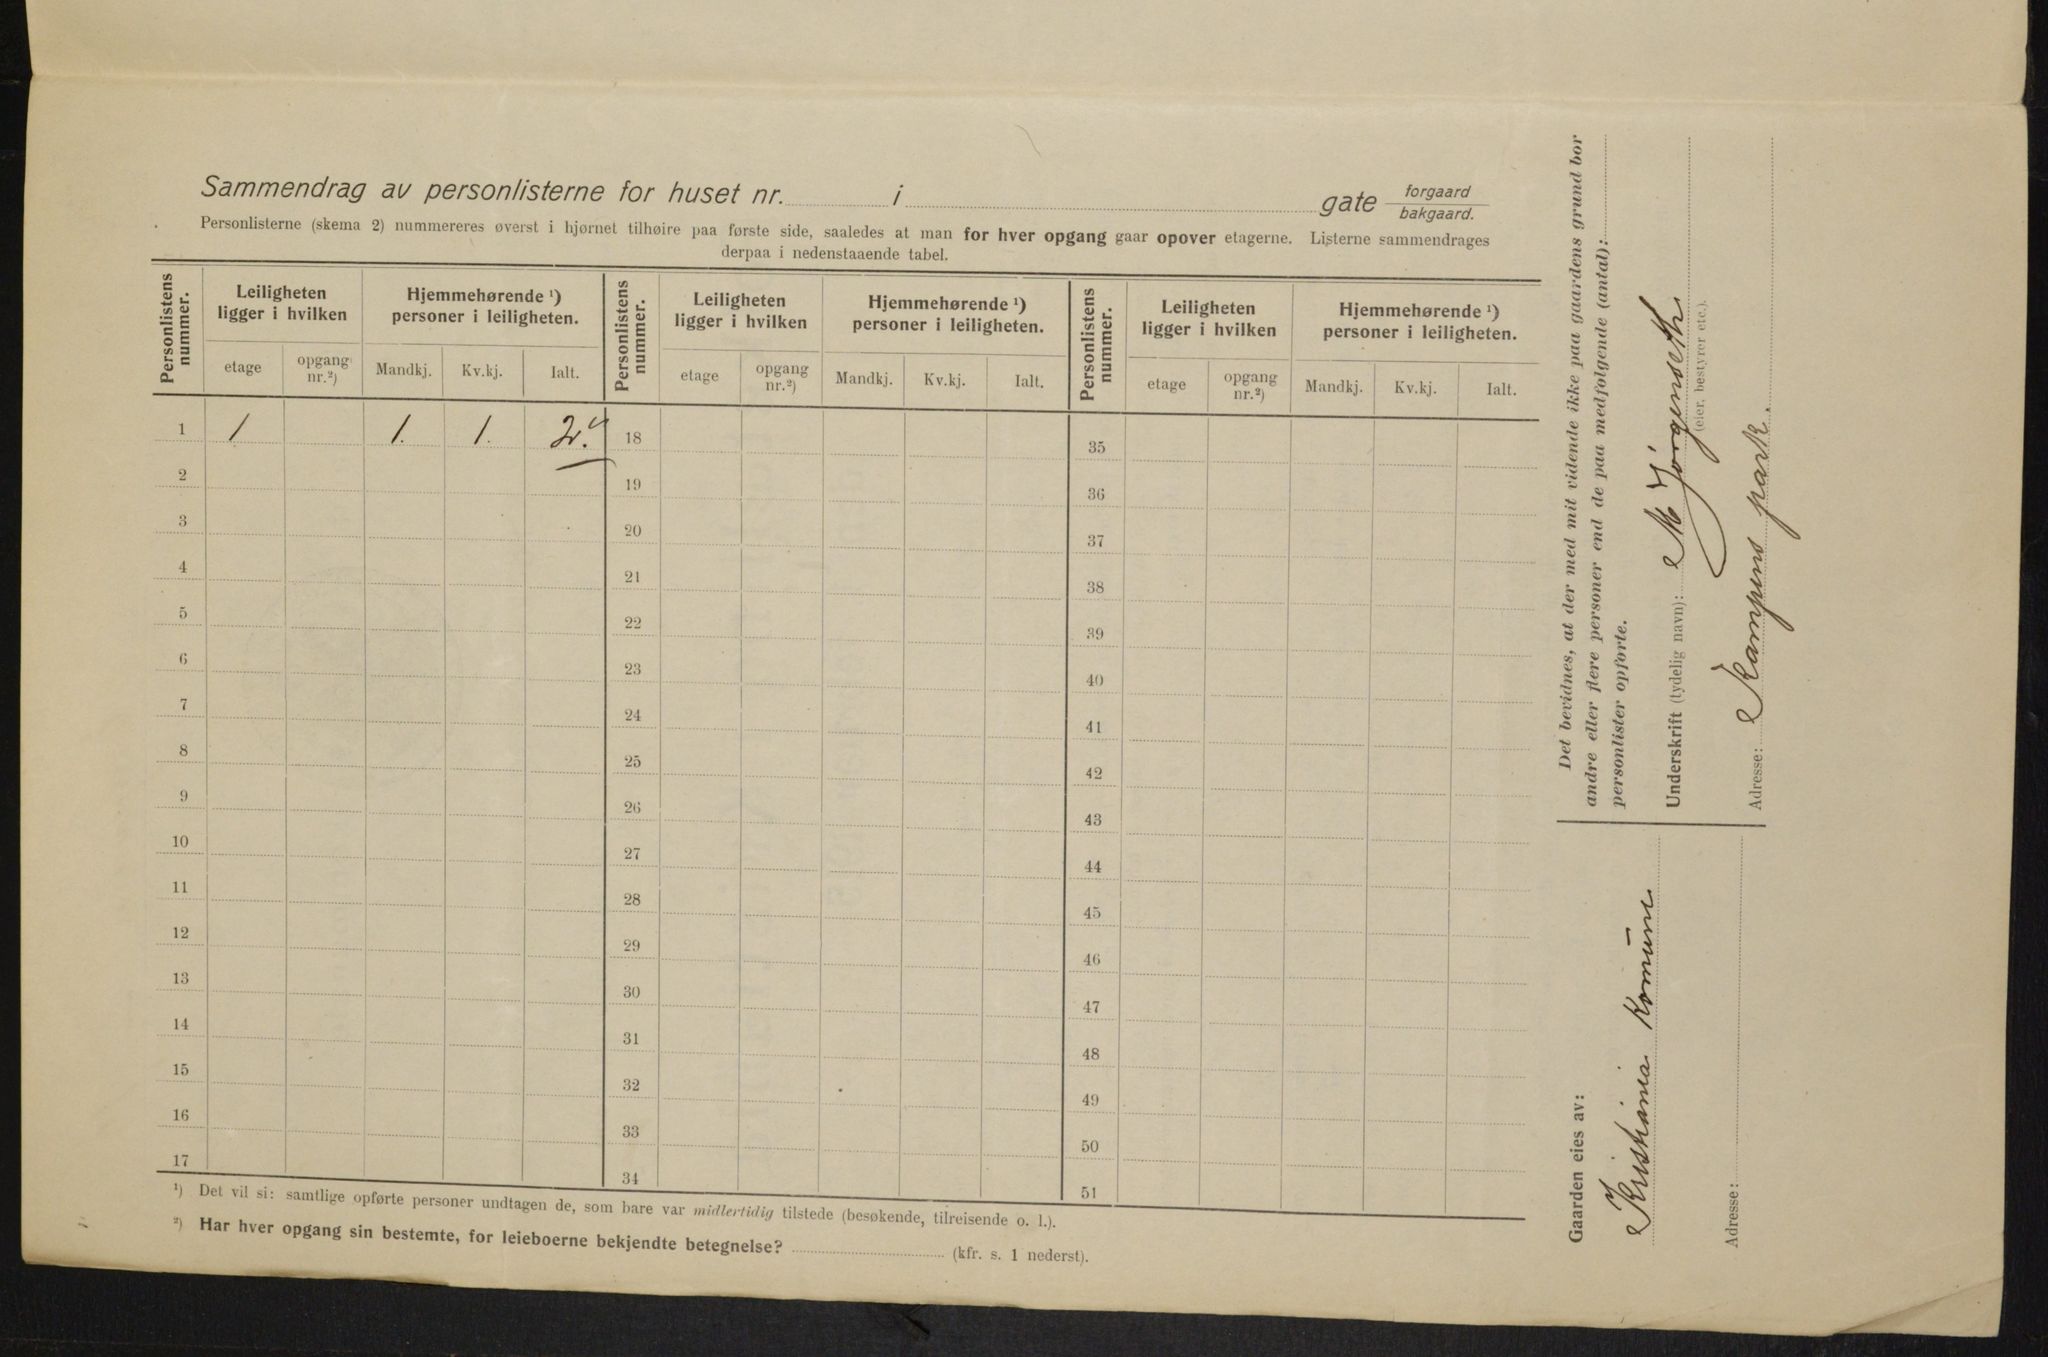 Sammendrag av personlisterne for huset nr. i gate forgaard
bakgaard.
Personlisterne (skema 2) nummereres øverst i hjørnet tilhøire paa første side, saaledes at man for hver opgang gaar opover etagerne. Listerne sammendrages
derpaa i nedenstaaende tabel.
Personlistens nummer. Leiligheten ligger i hvilken Hjemmehørende ¹) personer i leiligheten. Personlistens nummer. Leiligheten ligger i hvilken Hjemmehørende ¹) personer i leiligheten. Personlistens nummer. Leiligheten ligger i hvilken Hjemmehørende ¹) personer i leiligheten.
etage opgang nr.²) Mandkj. Kv.kj. Ialt. etage opgang nr.²) Mandkj. Kv.kj. Ialt. etage opgang nr.²) Mandkj. Kv.kj. Ialt.
1 1 1. 1. 2. 18 35
2 19 36
3 20 37
4 21 38
5 22 39
6 23 40
7 24 41
8 25 42
9 26 43
10 27 44
11 28 45
12 29 46
13 30 47
14 31 48
15 32 49
16 33 50
17 34 51
¹) Det vil si: samtlige opførte personer undtagen de, som bare var midlertidig tilstede (besøkende, tilreisende o. l.).
²) Har hver opgang sin bestemte, for leieboerne bekjendte betegnelse? (kfr. s. 1 nederst).
Det bevidnes, at der med mit vidende ikke paa gaardens grund bor
andre eller flere personer end de paa medfølgende (antal):
personlister opførte.
Underskrift (tydelig navn): M Jörgenseth
(eier, bestyrer etc.).
Adresse: Kampens park.
Gaarden eies av:
Kristiania Komune
Adresse: